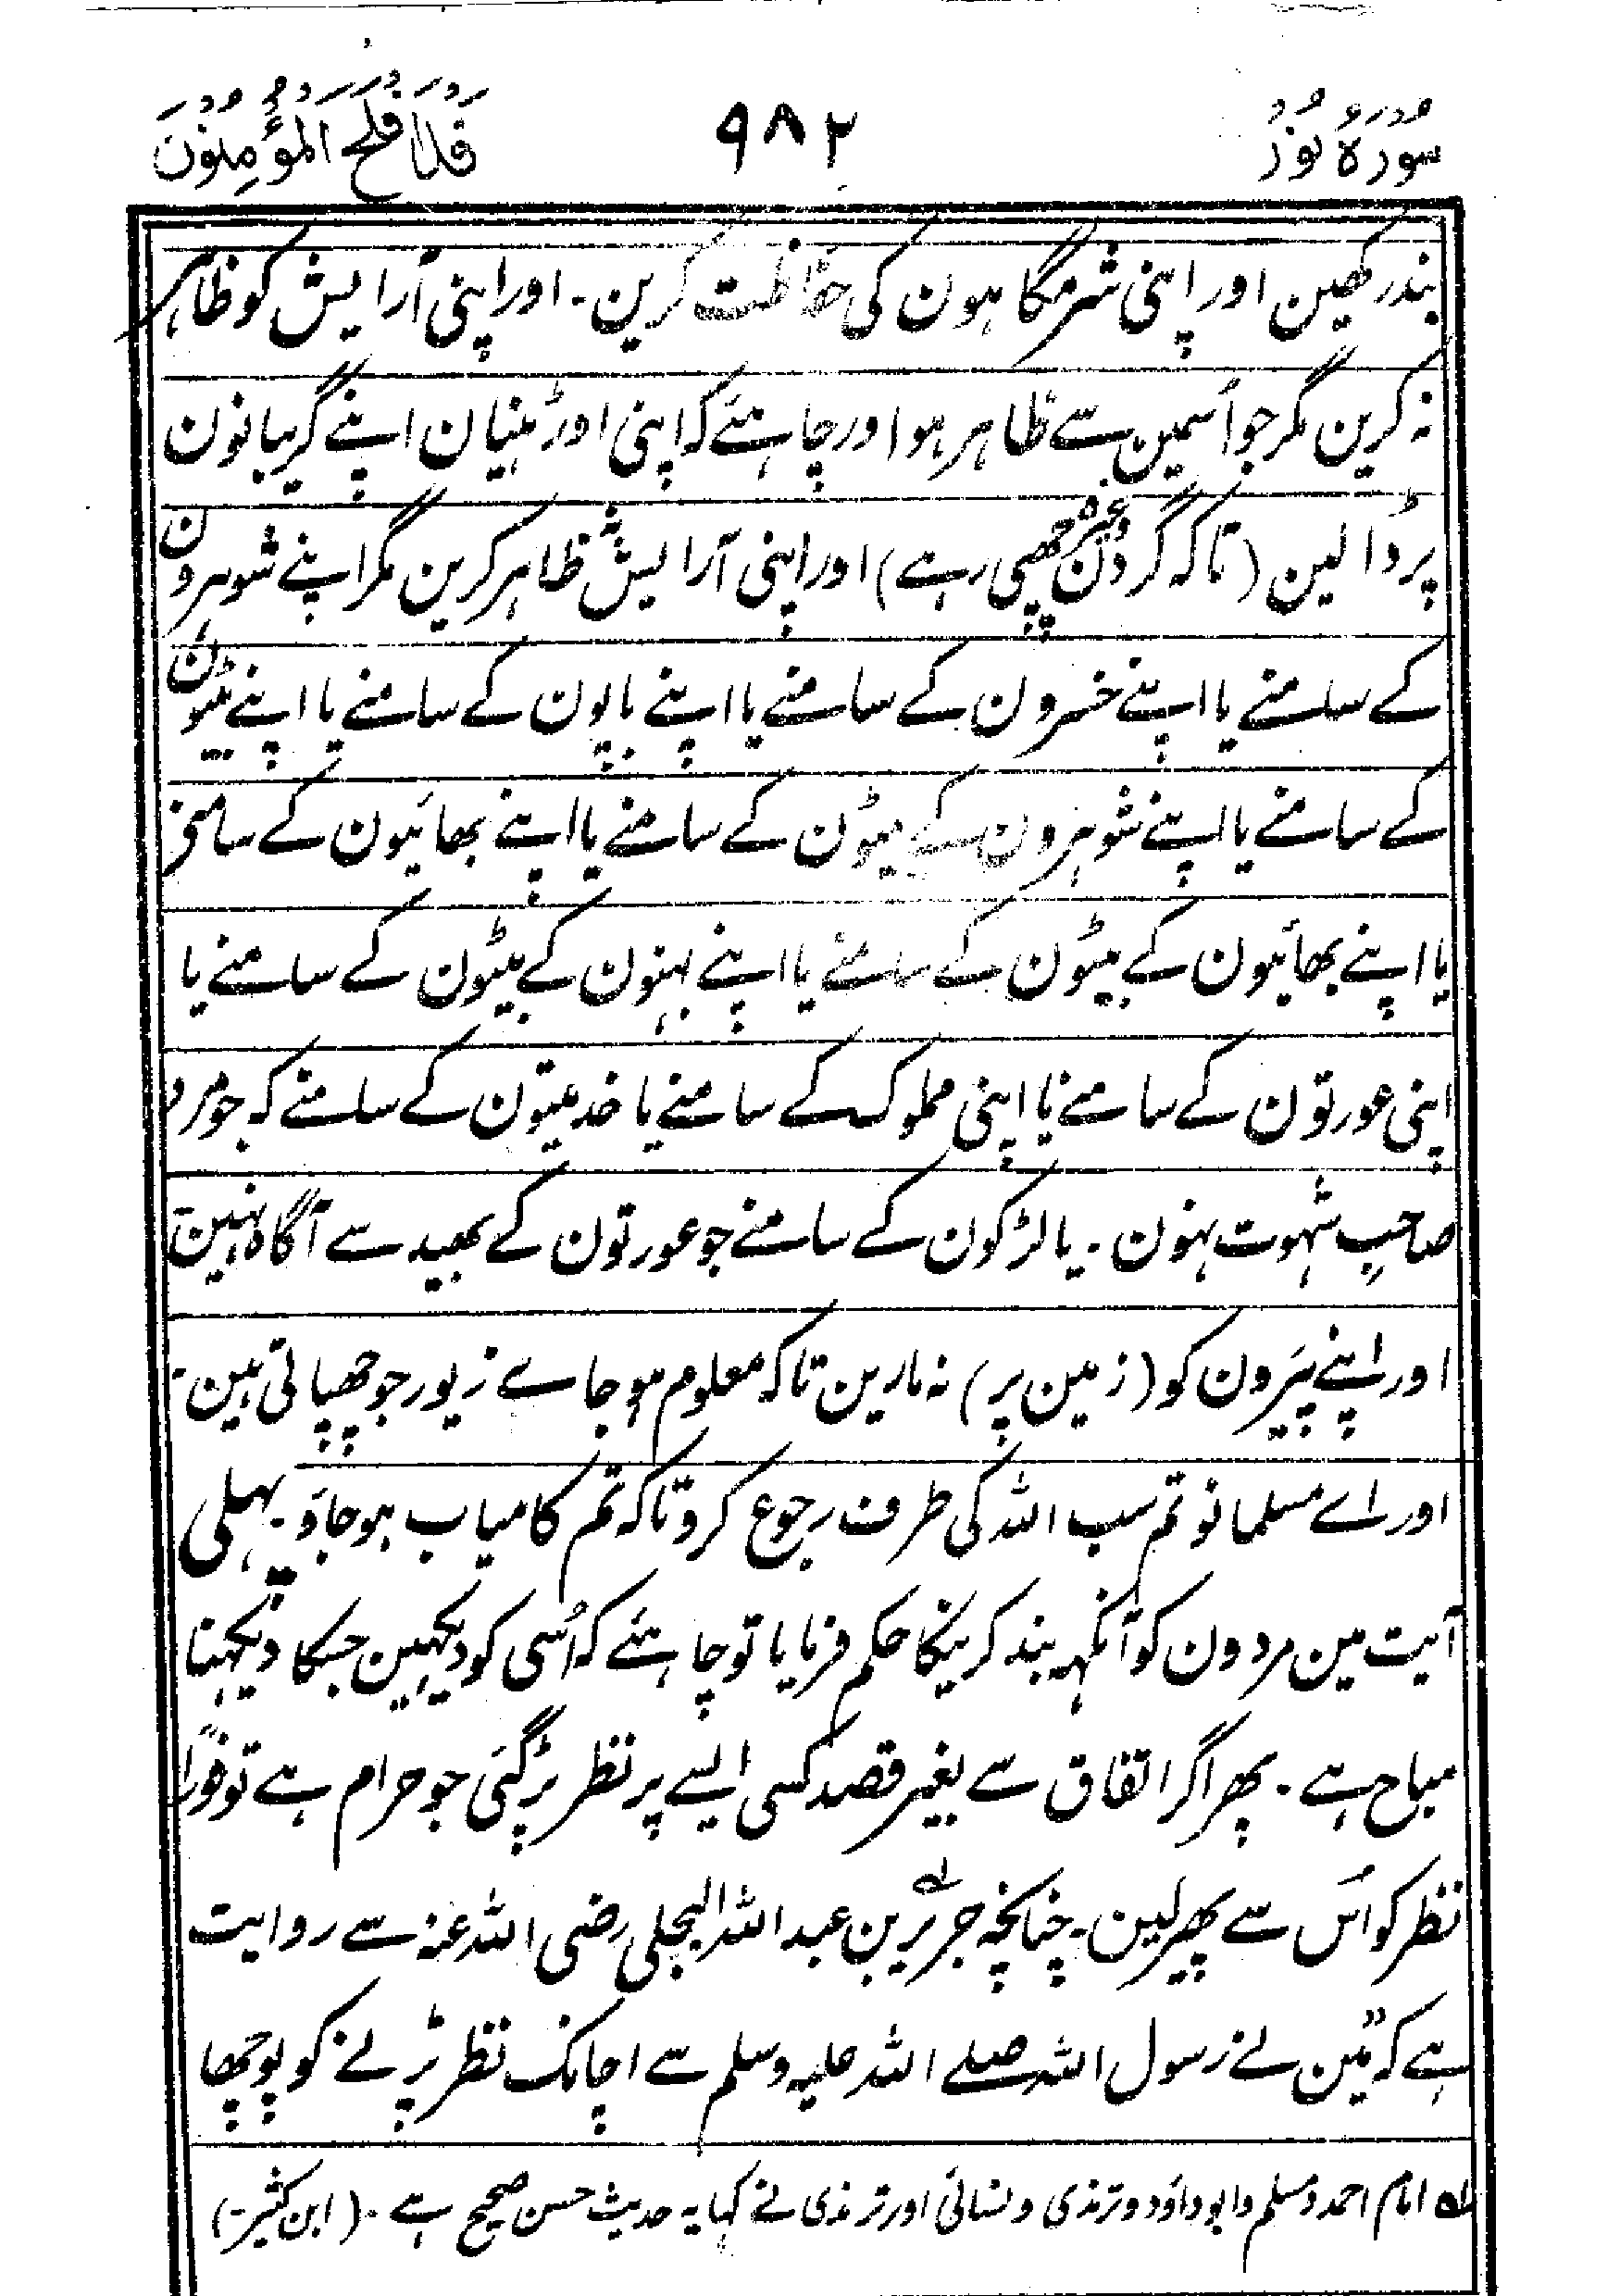 سُوْرَۃُ نُوْر
٩٨٢
قَدْ اَفْلَحَ الْمُؤْمِنُوْنَ
بندرکھین اور اپنی شرمگاہون کی حفاظت کرین۔ اور اپنی آرایش کو ظاہر
نہ کرین مگر جو اُسمین سے ظاہر ہو اور چاہئے کہ اپنی اوڑہنیان اپنے گریبانون
پر ڈالین (تاکہ گردن وغیرہ چھپی رہے) اور اپنی آرایش نہ ظاہر کرین مگر اپنے شوہرون
کے سامنے یا اپنے خسرون کے سامنے یا اپنے باپون کے سامنے یا اپنے بیٹون
کے سامنے یا اپنے شوہرون کے بیٹون کے سامنے یا اپنے بھائیون کے سامنے
یا اپنے بھائیون کے بیٹون کے سامنے یا اپنے بہنون کے بیٹون کے سامنے یا
اپنی عورتون کے سامنے یا اپنی مملوک کے سامنے یا خدمیتون کے سامنے کہ جو مرد
صاحبِ شہوت نہون۔ یا لڑکون کے سامنے جو عورتون کے بھید سے آگاہ نہین
اور اپنے پَیرون کو (زمین پر) نہ مارین تاکہ معلوم ہو جاے زیور جو چھپاتی ہین۔
اور اے مسلمانو تم سب اللہ کی طرف رجوع کرو تاکہ تم کامیاب ہو جاؤ۔ پہلی
آیت مین مردون کو آنکہہ بند کرنیکا حکم فرمایا تو چاہئے کہ اُسی کو دیکہین جسکا دیکہنا
مباح ہے۔ پھر اگر اتفاق سے بغیر قصد کسی ایسے پر نظر پڑ گئی جو حرام ہے تو فورًا
نظر کو اُس سے پھیر لین۔ چنانچہ جریر بن عبد اللہ البجلی رضی اللہ عنہ سے روایت
ہے کہ ”مَین نے رسول اللہ صلے اللہ علیہ وسلم سے اچانک نظر پڑنے کو پوچھا
لہ امام احمد و مسلم و ابو داؤد و ترمذی و نسائی اور ترمذی نے کہا یہ حدیث حسن صحیح ہے۔ (ابن کثیر۔)